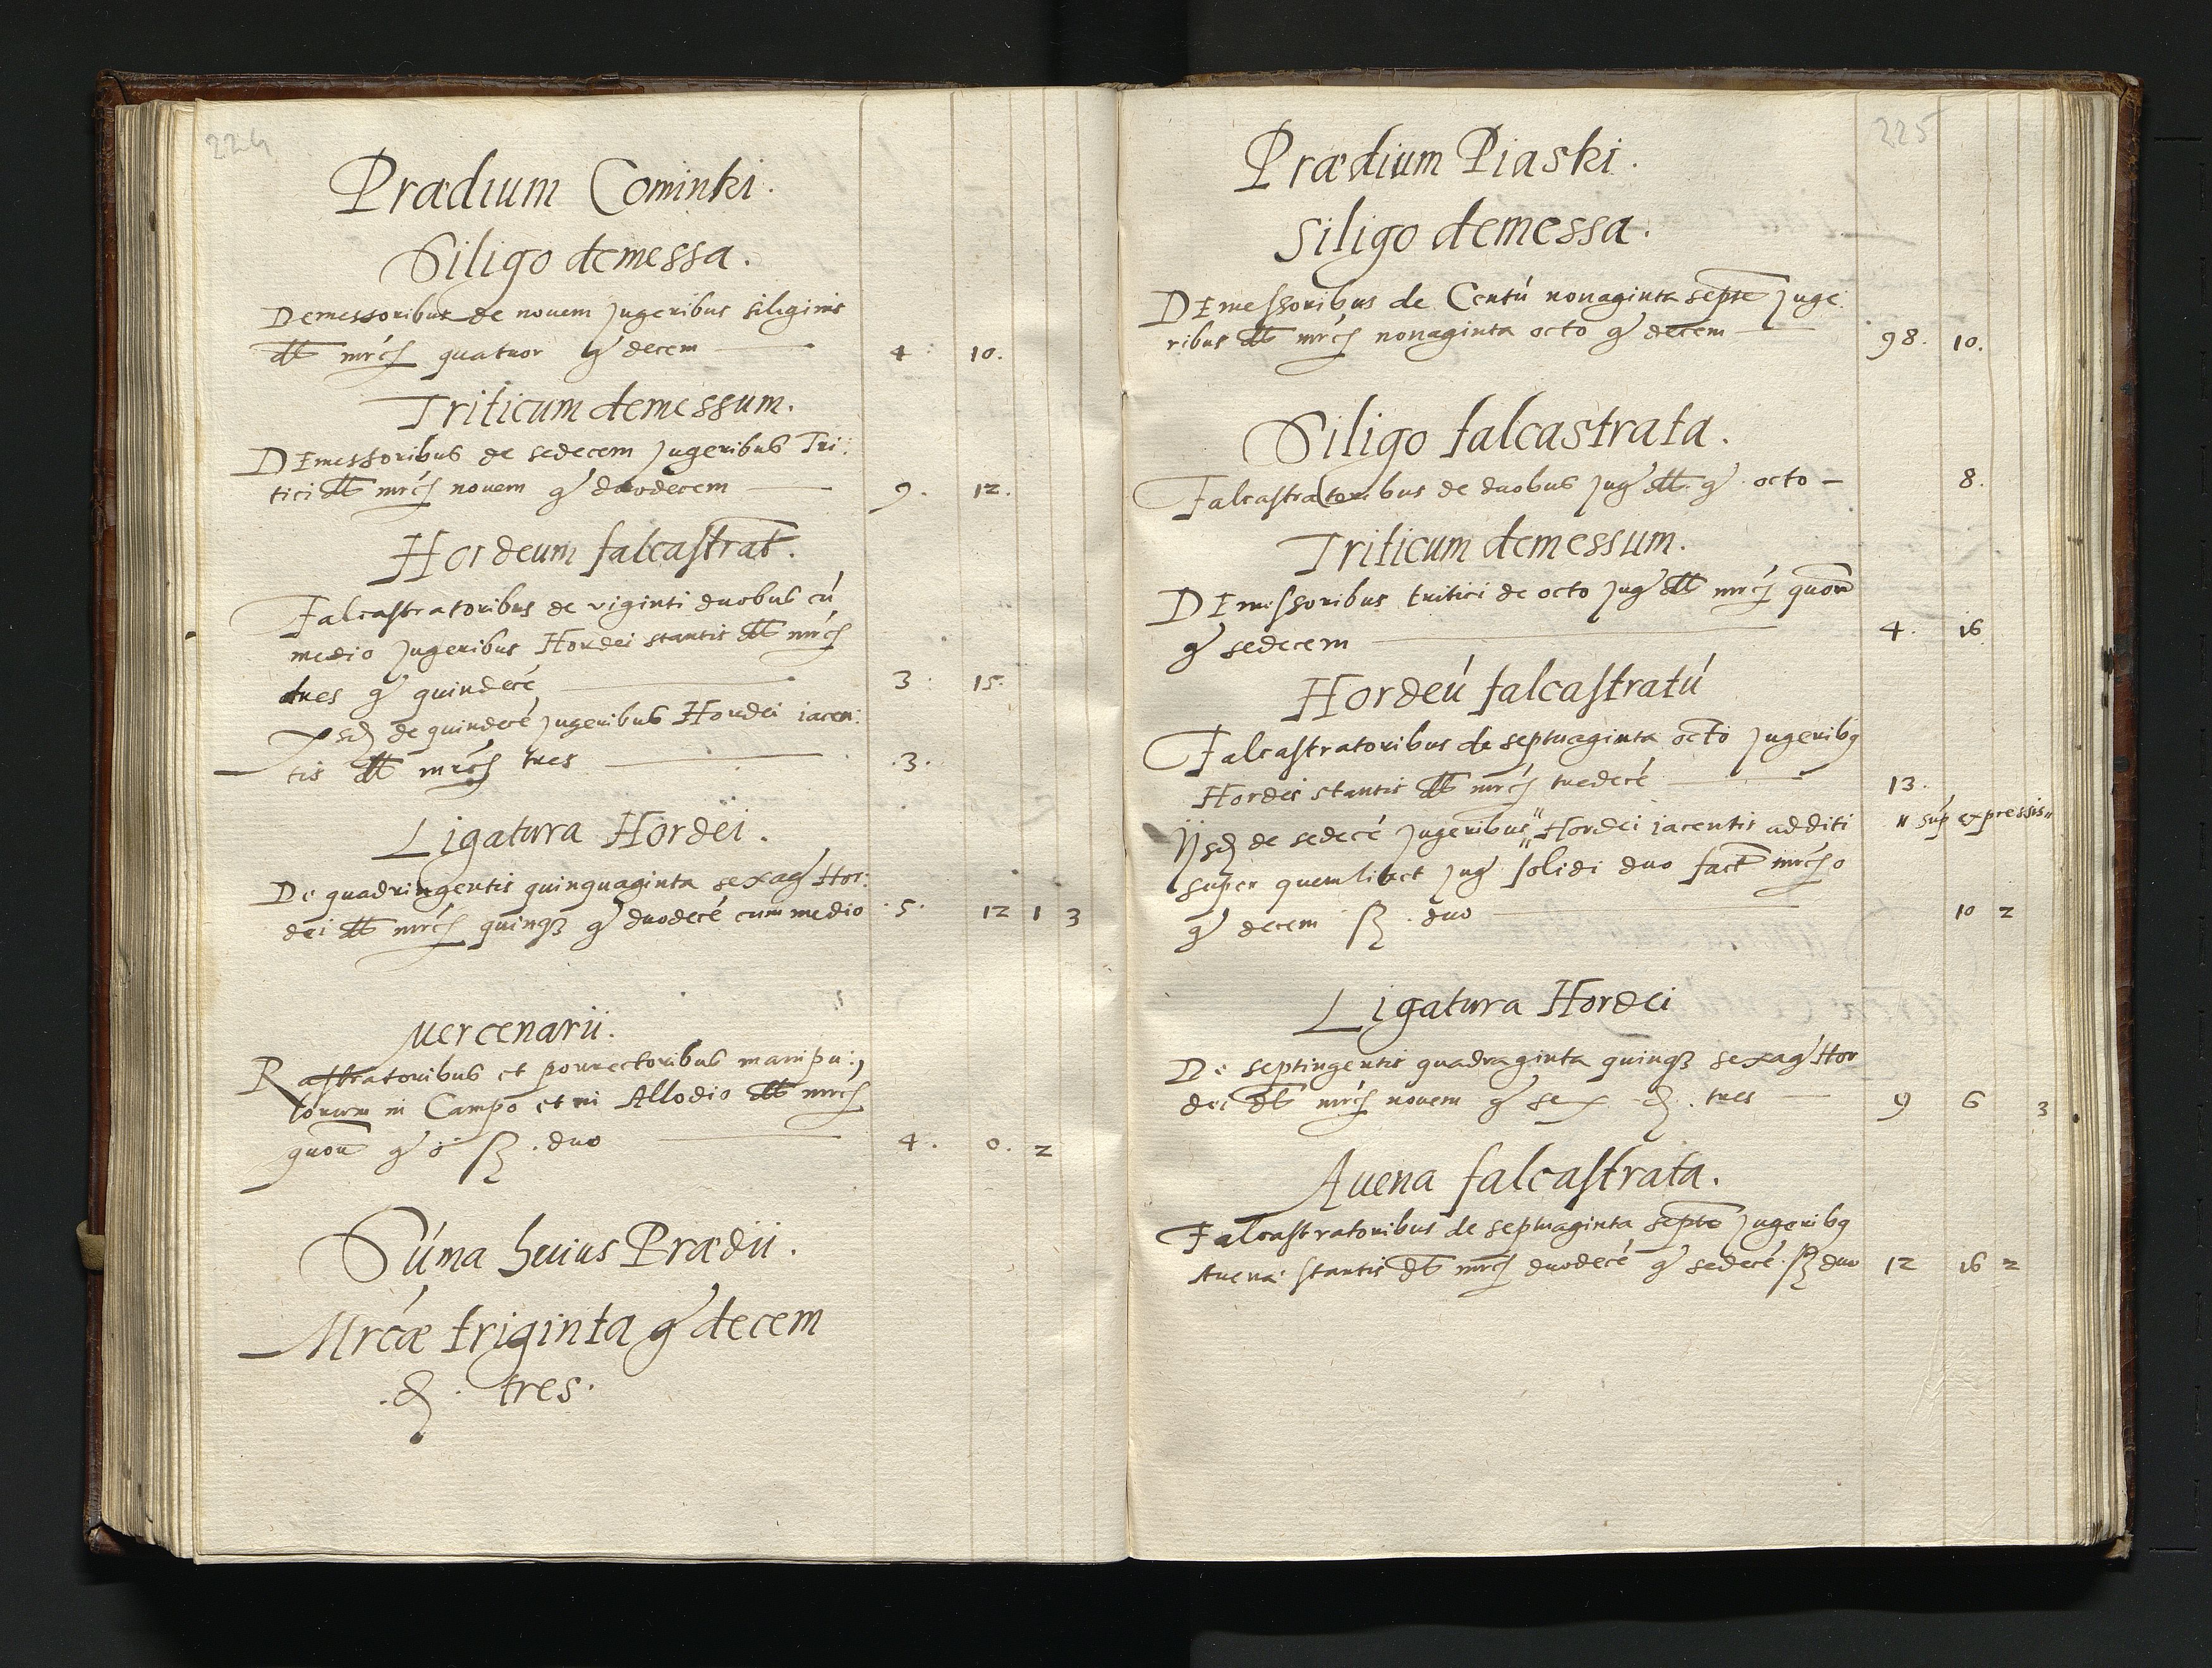 224
Prædium Cominki.
Siligo demessa.
Demessoribus de nouem Jugeribus siliginis
dt mrcs quatuor gr decem 4 10.
Triticum demessum.
Demessoribus de sedecem Jugeribus Tri:
tici dt mrcs nouem gr duodecem 9. 12.
Hordeum falcastrat.
Falcastratoribus de viginti duobus cú
medio Jugeribus Hordei stantis dt mrcs
tres gr quindecé 3. 15.
de quindecé Jugeribus Hordei iacen:
tis dt mrcs tres .3.
Ligatura Hordei.
De quadringentis quinquaginta sexag Hor:
dei dt mrcs quinqз gr duodecé cum medio .5. 12 1 3
Mercenarii.
Rastratoribus et porrectoribus manipu:
lorum in Campo et in Allodio dt mrcs
quour gr o ß. duo 4. 0. 2
Súma huius Prædii.
Mrcæ triginta gr decem
.₰. tres.
225
Prædium Piaski.
Siligo demessa.
Demessoribus de Centú nonaginta septe Juge
ribus dt mrcs nonaginta octo gr decem 98. 10.
Siligo falcastrata.
Falcastratoribus de duobus Jug dt. gr octo 8.
Triticum demessum.
Demessoribus tritici de octo Jug dt mrcs quour
gr sedecem 4. 16
Hordeú falcastratú
Falcastratoribus de septuaginta octo Jugeribq
Hordei stantis dt mrcs tredecé 13.
IJsd de sedecé Jugeribus" Hordei iacentis additi " sup expressis"
super quemlibet Jug solidi duo fact mrcs o
gr decem ß. duo 10 2
Ligatura Hordei
De septingentis quadraginta quinqз sexag Hor
dei dt mrcs nouem gr sex ₰. tres 9 6 3
Auena falcastrata.
Falcastratoribus de septuaginta septe Jugeribq
Auena stantis dt mrcs duodecé gr sedecé. ß duo 12 16 2